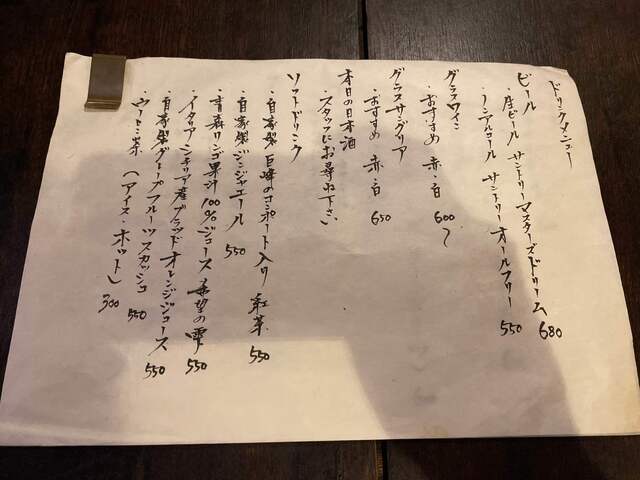 ドリンクメニュー
ビール
・生ビール サントリーマスターズドリーム 680
・ノンアルコール サントリーオールフリー 550
グラスワイン
・おすすめ 赤・白 600〜
グラスサングリア
・おすすめ 赤・白 650
本日の日本酒
・スタッフにお尋ね下さい
ソフトドリンク
・自家製 巨峰のコンポート入り 紅茶 550
・自家製ジンジャエール 550
・青森リンゴ果汁100%ジュース 希望の雫 550
・イタリアシチリア産ブラッドオレンジジュース 550
・自家製グレープフルーツスカッシュ 550
・ウーロン茶 (アイス・ホット) 300